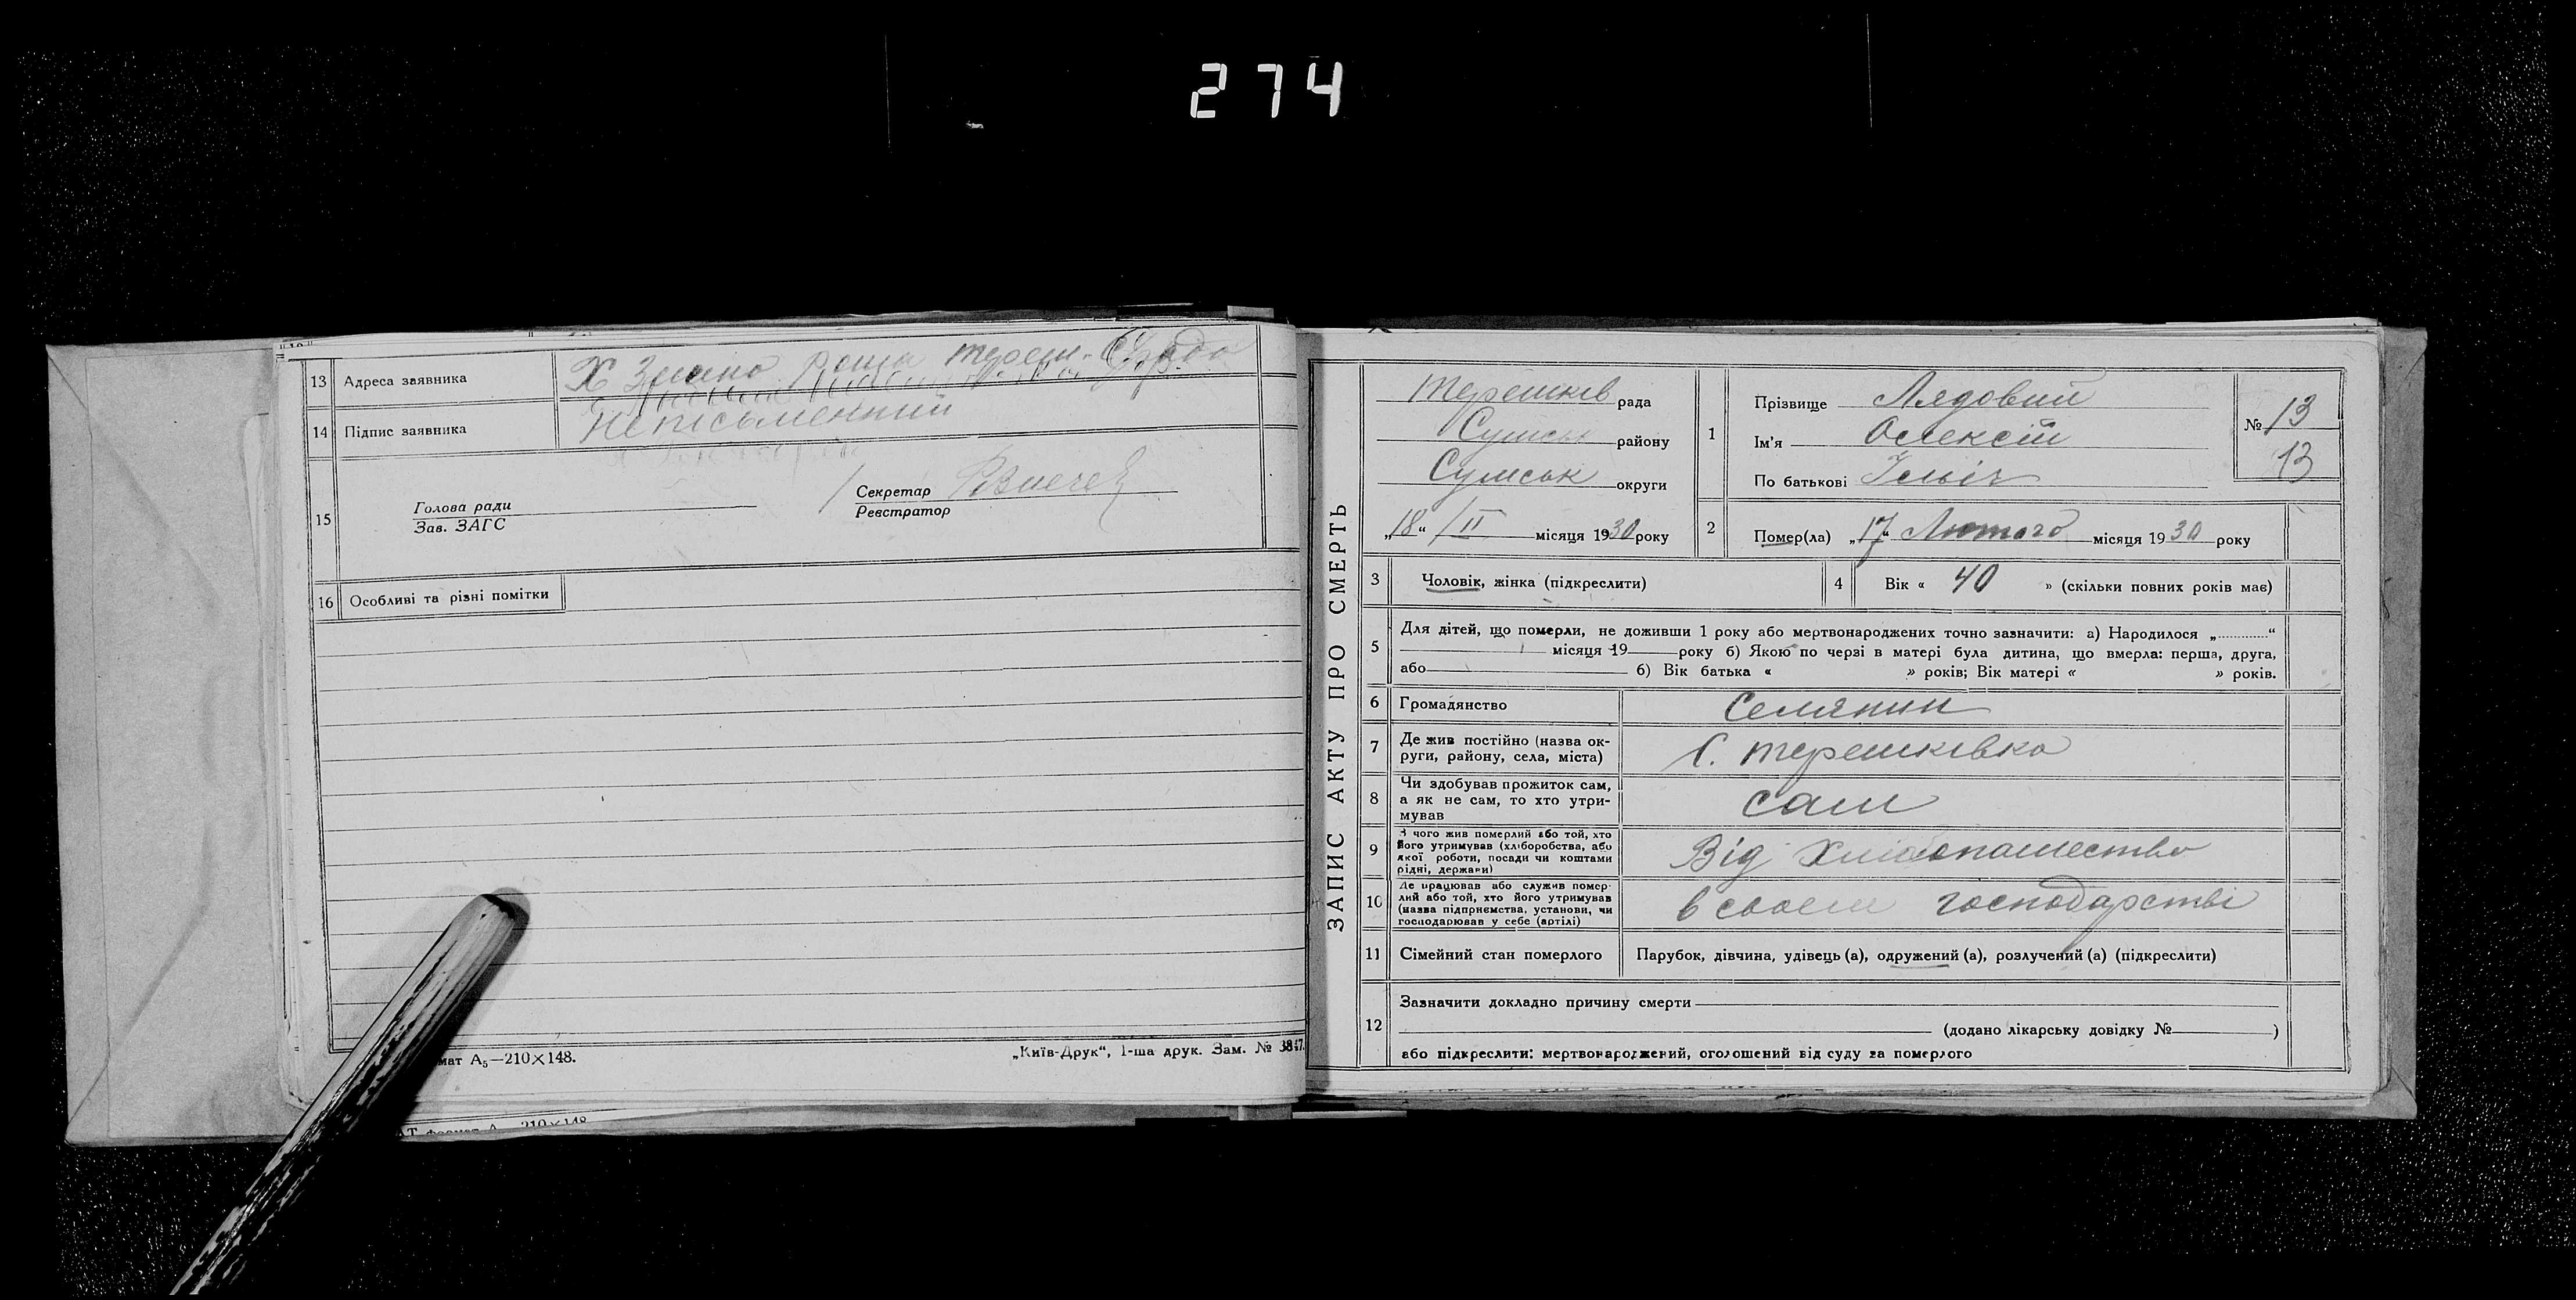 274
13 Адреса заявника Х Зелена роща тереш. С/рада
14 Підпис заявника Неписьменний
15 Голова ради
Зав. ЗАГС
Секретар
Реєстратор
16 Особливі та різні помітки
мат А5—210×148.
„Київ-Друк“, 1-ша друк. Зам. № 3847.
ЗАПИС АКТУ ПРО СМЕРТЬ
Терешків рада
Сумськ району
Сумськ округи
„18“ /II місяця 1930 року
1 Прізвище Лядовий
Ім'я Олексій
По батькові Ільіч
№ 13
13
2 Помер(ла) „17“ Лютого місяця 1930 року
3 Чоловік, жінка (підкреслити)
4 Вік « 40 » (скільки повних років має)
5 Для дітей, що померли, не доживши 1 року або мертвонароджених точно зазначити: а) Народилося „............“
місяця 19 року б) Якою по черзі в матері була дитина, що вмерла: перша, друга,
або б) Вік батька « » років; Вік матері « » років.
6 Громадянство Селянин
7 Де жив постійно (назва ок-
руги, району, села, міста) С. Терешківка
8 Чи здобував прожиток сам,
а як не сам, то хто утри-
мував сам
9 З чого жив померлий або той, хто
його утримував (хліборобства, або
якої роботи, посади чи коштами
рідні, держави) Від хлібопашество
10 Де працював або служив помер-
лий або той, хто його утримував
(назва підприємства, установи, чи
господарював у себе (артілі) в своем господарстві
11 Сімейний стан померлого Парубок, дівчина, удівець (а), одружений (а), розлучений (а) (підкреслити)
12 Зазначити докладно причину смерти
(додано лікарську довідку № )
або підкреслити: мертвонароджений, оголошений від суду за померлого